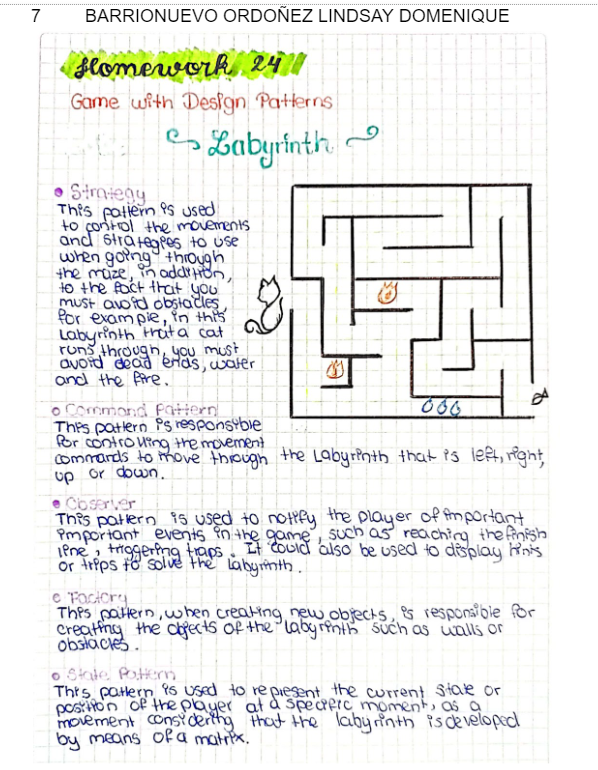 7 BARRIONUEVO ORDOÑEZ LINDSAY DOMENIQUE
Homework 24
Game with Design Patterns
Labyrinth
• Strategy
This pattern is used
to control the movements
and strategies to use
when going through
the maze, in addition,
to the fact that you
must avoid obstacles,
for example, in this
Labyrinth that a cat
runs through, you must
avoid dead ends, water
and the fire.
• Command Pattern
This pattern is responsible
for controlling the movement
commands to move through the Labyrinth that is left, right,
up or down.
• Observer
This pattern is used to notify the player of important
important events in the game, such as reaching the finish
line, triggering traps. It could also be used to display hints
or trips to solve the labyrinth.
• Factory
This pattern, when creating new objects, is responsible for
creating the objects of the labyrinth such as walls or
obstacles.
• State Pattern
This pattern is used to represent the current state or
position of the player at a specific moment, as a
movement considering that the labyrinth is developed
by means of a matrix.